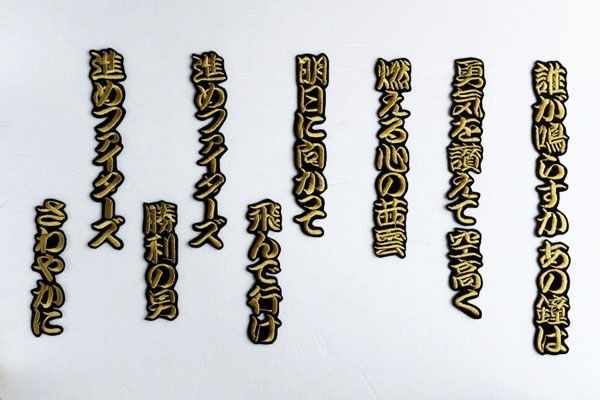 誰が鳴らすか あの鐘は
勇気を讃えて 空高く
燃える心の茜雲
明日に向かって
飛んで行け
進めファイターズ
勝利の男
進めファイターズ
さわやかに